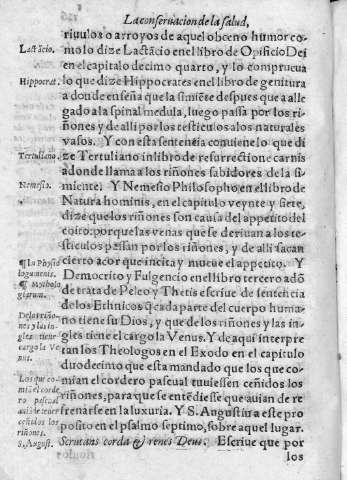 La conseruacion de la salud,
riuulos o arroyos de aquel obceno humor co-
mo lo dize Lactãcio en el libro de Opificio Dei
en el capitalo decimo quarto, y lo comprueua
lo que dize Hippocrates en el libro de genitura
a donde enseña que la simiẽte despues que a alle
gado a la spinal medula, luego passa por los ri-
ñones y de alli por los testiculos a los naturales
vasos. Y con esta sentencia conuiene lo que di
ze Tertuliano in libro de resurrectione carnis
adonde llama a los riñones sabidores de la si-
miente: Y Nemesio Philosopho, en el libro de
Natura hominis, en el capitulo veynte y siete,
dize que los riñones son causa del appetito del
coito: porque las venas que se deriuan a los te-
sticulos passan por los riñones, y de alli sacan
cierto acor que incita y mueue el appetito. Y
Democrito y Fulgencio en el libro tercero adõ
de trata de Peleo y Thetis escriue de sentencia
de los Ethnicos q̃ cada parte del cuerpo huma-
no tiene su Dios, y que de los riñones y las in-
gles tiene el cargo la Venus. Y de aqui interpre
tan los Theologos en el Exodo en el capitulo
duodecimo que esta mandado que los que co-
mian el cordero pascual tuuiessen ceñidos los
riñones, para que se entẽdiesse que auian de re
frenarse en la luxuria. Y S. Augustin a este pro
posito en el psalmo septimo, sobre aquel lugar.
Scrutans corda & renes Deus: Escriue que por
los
Lactãcio.
Hippocrat.
Tertuliano.
Nemesio.
¶ In Physio
logumenis.
¶ Mytholo
giarum.
De los riño-
nes y las in-
gles tiene
cargo la Ve
nus.
Los que co-
miã el corde
ro pascual
auiã de tener
ceñidos los
riñones.
S. August.